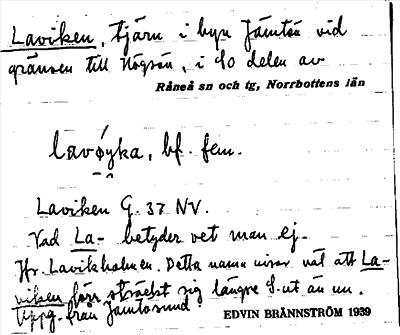 Laviken, tjärn i byn Jämtön vid
gränsen till Högsön, i SO delen av
Råneå sn och tg, Norrbottens län
lavǿyka, bf. fem.
Laviken G. 37 NV.
Vad La- betyder vet man ej.
Jfr. Lavikholmen. Detta namn visar väl att La-
viken förr sträckt sig längre S.ut än nu.
Uppg. från Jämtösund
EDVIN BRÄNNSTRÖM 1939